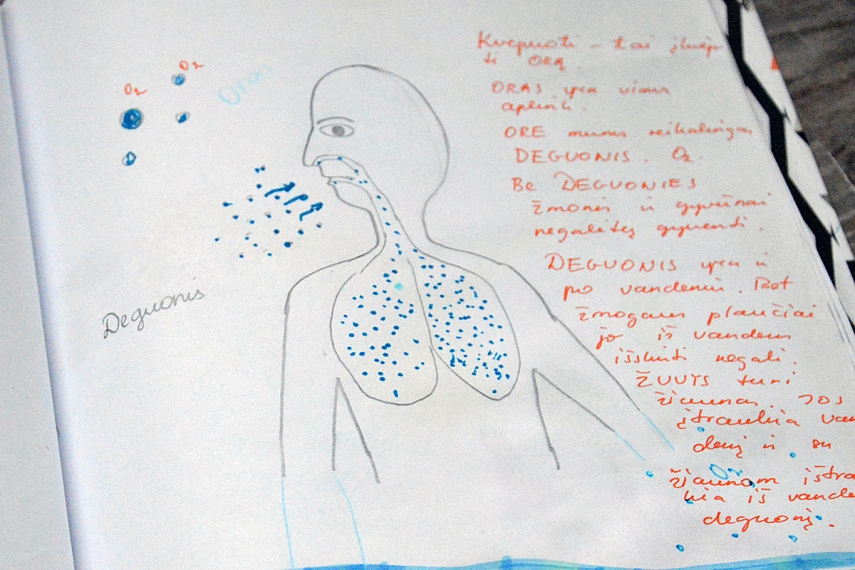 O₂
O₂
Oras
Deguonis
Kvėpuoti – tai įkvėp
ti ORĄ.
ORAS yra visur
aplink.
ORE mums reikalingas
DEGUONIS. O₂.
Be DEGUONIES
žmonės ir gyvūnai
negalėtų gyventi.
DEGUONIS yra ir
po vandeniu. Bet
žmogaus plaučiai
jo iš vandens
išskirti negali.
ŽUVYS turi
žiaunas. JOS
įtraukia van
denį ir su
O₂
žiaunom ištrau
kia iš vandens
deguonį.